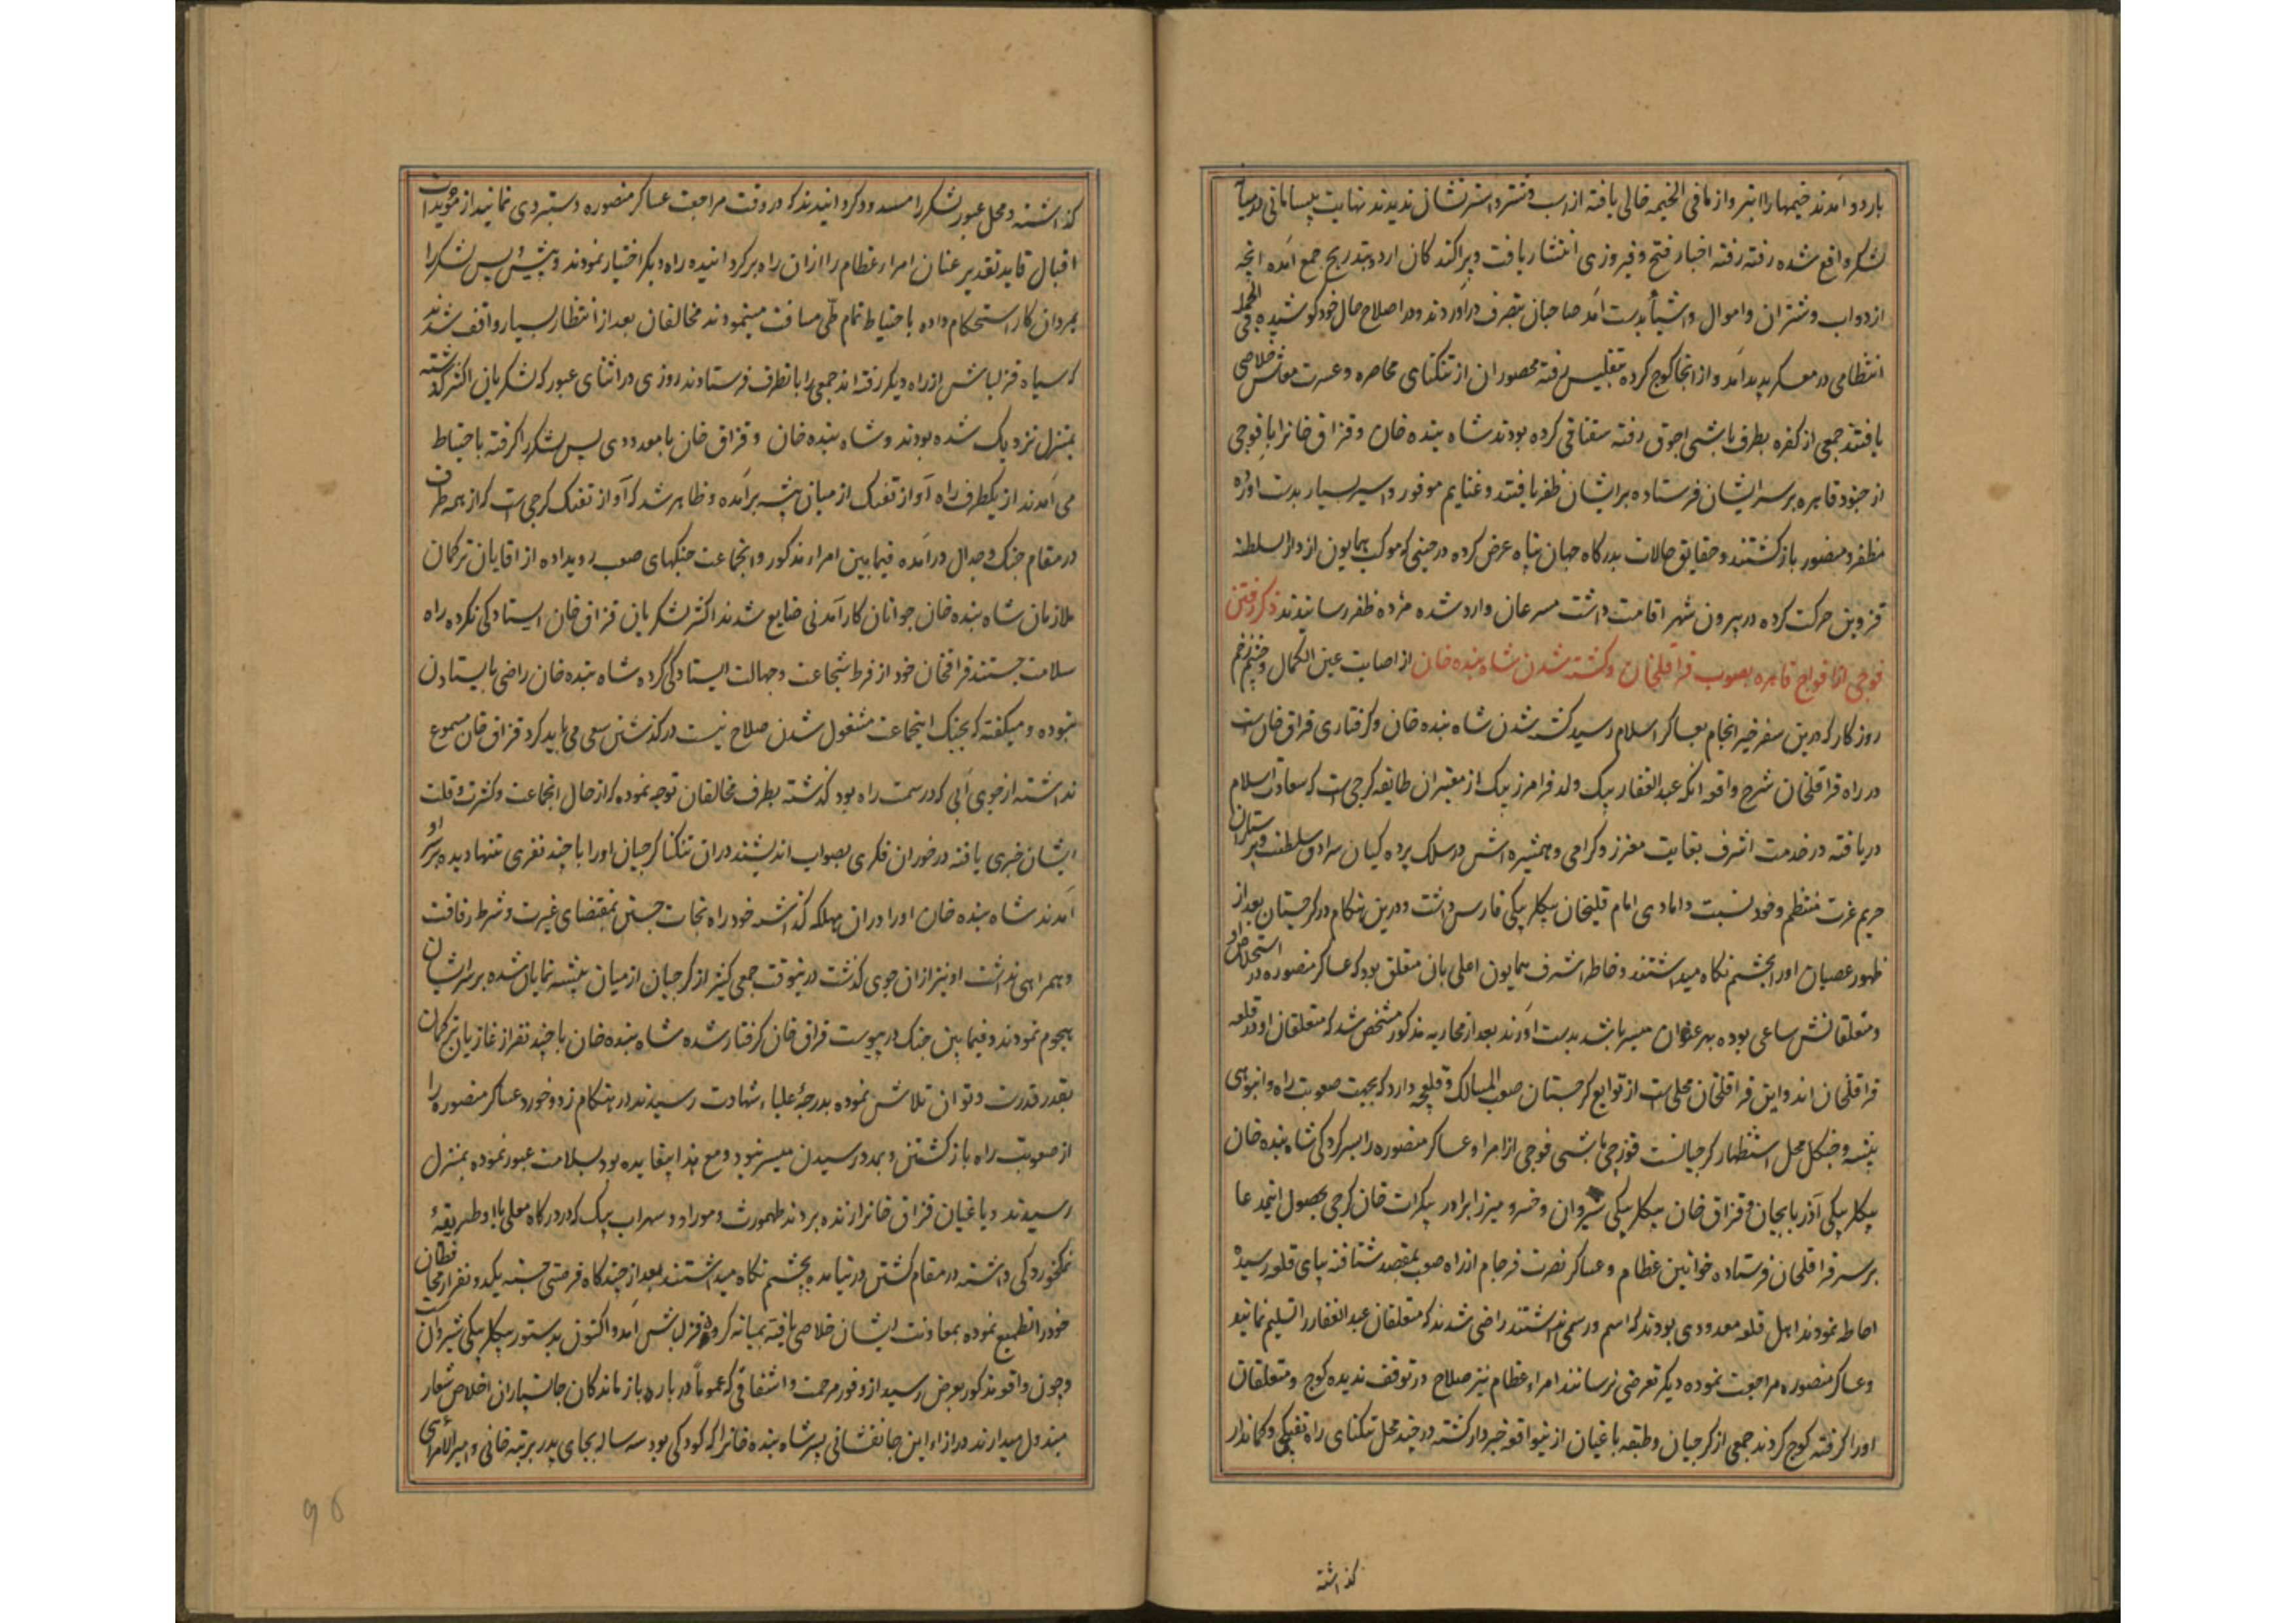 باردو آمدند خیمها را ابتر و از مافی الخیمه خالی یافته از اسب و شتر و استر نشان ندیدند نهایت بیسامانی در میان
لشکر واقع شده رفته رفته اخبار فتح و فیروزی انتشار یافت و پراکندکان اردو بتدریج جمع آمده انچه
از دواب و شتران و اموال و اشیا بدست آمد صاحبان بتصرف درآوردند و در اصلاح حال خود کوشیده فی الجمله
انتظامی در معسکر پدید آمد و از انجا کوچ کرده بتفلیس رفته محصوران از تنکنای محاصره و عسرت معاش خلاصی
یافتند جمعی از کفره بطرف باشی اجوق رفته سقناقی کرده بودند شاه بنده خان و قزاق خانرا با فوجی
از جنود قاهره بر سر ایشان فرستاده بر ایشان ظفر یافتند و غنایم موفور و اسیر بسیار بدست آورده
مظفر و منصور بازکشتند و حقایق حالات بدرکاه جهان پناه عرض کرده در حینی که موکب همایون از دار السلطنه
قزوین حرکت کرده در بیرون شهر اقامت داشت مسرعان وارد شده مژده ظفر رسانیدند ذکر رفتن
فوجی از افواج قاهره بصوب قراقلخان و کشته شدن شاه بنده خان از اصابت عین الکمال و چشم زخم
روزکار که درین سفر خیر انجام بعساکر اسلام رسید کشته شدن شاه بنده خان و کرفتاری قزاق خان است
در راه قراقلخان شرح واقعه انکه عبد الغفار بیک ولد فرامرز بیک از معتبران طایفه کرجی است که سعادت اسلام
دریافته در خدمت اشرف بغایت معزز و کرامی و همشیره اش در سلک پرده کیان سرادق سلطنت و پرستاران
حریم عزت منتظم و خود نسبت دامادی امام قلیخان بیکلربیکی فارس داشت و درین هنکام در کرجستان بعد از
ظهور عصیان او را بچشم نکاه میداشتند و خاطر اشرف همایون اعلی بان متعلق بود که عساکر منصوره در استخلاص او
و متعلقانش ساعی بوده بهر عنوان میسر باشد بدست آورند بعد از محاربه مذکور مشخص شد که متعلقان او در قلعه
قراقلخان اند و این قراقلخان محلی است از توابع کرجستان صعب المسالک و قلعچه دارد که بجهت صعوبت راه و انبوهی
بیشه و جنکل محل استظهار کرجیانست قورچی باشی فوجی از امرا و عساکر منصوره را بسرکردکی شاه بنده خان
بیکلربیکی آذربایجان و قزاق خان بیکلربیکی شیروان و خسرو میرزا برادر بکرات خان کرجی بحصول این مدعا
بر سر قراقلخان فرستاده خوانین عظام و عساکر نصرت فرجام از راه صعب بمقصد شتافته بپای قلعه رسیده
احاطه نمودند اهل قلعه معدودی بودند که اسم و رسمی نداشتند راضی شدند که متعلقان عبد الغفار را تسلیم نمایند
و عساکر منصوره مراجعت نموده دیکر تعرضی نرسانند امراء عظام نیز صلاح در توقف ندیده کوچ و متعلقان
او را کرفته کوچ کردند جمعی از کرجیان و طبقه باغیان از نیواقعه خبردار کشته در چند محل تنکنای راه تفنکچی و کماندار
کذاشته
کذاشته و محل عبور لشکر را مسدود کردانیدند که در وقت مراجعت عساکر منصوره دستبردی نمایند از مؤیدات
اقبال قاید تقدیر عنان امراء عظام را از ان راه برکردانیده راه دیکر اختیار نمودند و پیش و پس لشکر را
بمردان کار استحکام داده باحتیاط تمام طی مسافت مینمودند مخالفان بعد از انتظار بسیار واقف شدند
که سپاه قزلباش از راه دیکر رفته اند جمعی را بانطرف فرستادند روزی در اثنای عبور که لشکریان اکثر کذشته
بمنزل نزدیک شده بودند و شاه بنده خان و قزاق خان با معدودی پس لشکر را کرفته باحتیاط
می آمدند از یکطرف راه آواز تفنک از میان بیشه برآمده و ظاهر شد که آواز تفنک کرجی است که از همه طرف
در مقام جنک و جدال درآمده فیمابین امراء مذکور و انجماعت جنکهای صعب رویداده از اقایان ترکمان
ملازمان شاه بنده خان جوانان کارآمدنی ضایع شدند اکثر لشکریان قزاق خان ایستادکی نکرده راه
سلامت جستند قزاقخان خود از فرط شجاعت و جهالت ایستادکی کرده شاه بنده خان راضی بایستادن
نبوده و میکفته که بجنک اینجماعت مشغول شدن صلاح نیست در کذشتن سعی می باید کرد قزاق خان مسموع
نداشته از جوی آبی که در سمت راه بود کذشته بطرف مخالفان توجه نموده که از حال انجماعت و کثرت و قلت
ایشان خبری یافته در خور ان فکری بصواب اندیشند در ان تنکنا کرجیان او را با چند نفری تنها دیده بر سر او
آمدند شاه بنده خان او را در ان مهلکه کذاشته خود راه نجات جستن بمقتضای غیرت و شرط رفاقت
و همراهی نداشت او نیز از ان جوی کذشت در نیوقت جمعی کثیر از کرجیان از میان بیشه نمایان شده بر سر ایشان
هجوم نمودند و فیمابین جنک در پیوست قزاق خان کرفتار شده شاه بنده خان با چند نفر از غازیان ترکمان
بقدر قدرت و توان تلاش نموده بدرجهٔ علیاء شهادت رسیدند در هنکام زد و خورد عساکر منصوره را
از صعوبت راه بازکشتن و بمدد رسیدن میسر نبود و مع هذا بیفایده بود بسلامت عبور نموده بمنزل
رسیدند و یاغیان قزاق خانرا زنده بردند طهمورث و موراو و سهراب بیک که در درکاه معلی با او طریقهٔ
نمکخوردکی داشته در مقام کشتن در نیامده بچشم نکاه میداشتند بعد از چندکاه فرصتی جسته یکدو نفر از محافظان
خود را تطمیع نموده بمعاونت ایشان خلاصی یافته بمیانه کروه قزلباش آمد و اکنون بدستور بیکلربیکی شیروان است
و چون واقعه مذکور بعرض رسید از وفور مرحمت و اشفاقی که عموماً در باره بازماندکان جانسپاران اخلاص شعار
مبذول میدارند در ازاء این جانفشانی پسر شاه بنده خانرا که کودکی بود سه ساله بجای پدر برتبه خانی و امیر الامرائی